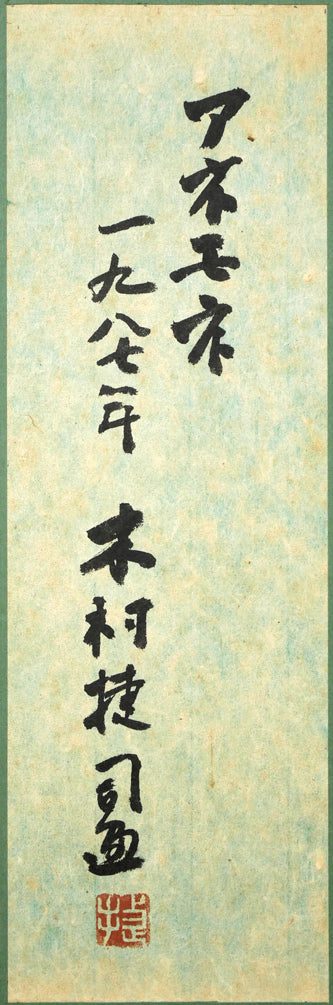 アネモネ
一九八七年 木村捷司画
捷